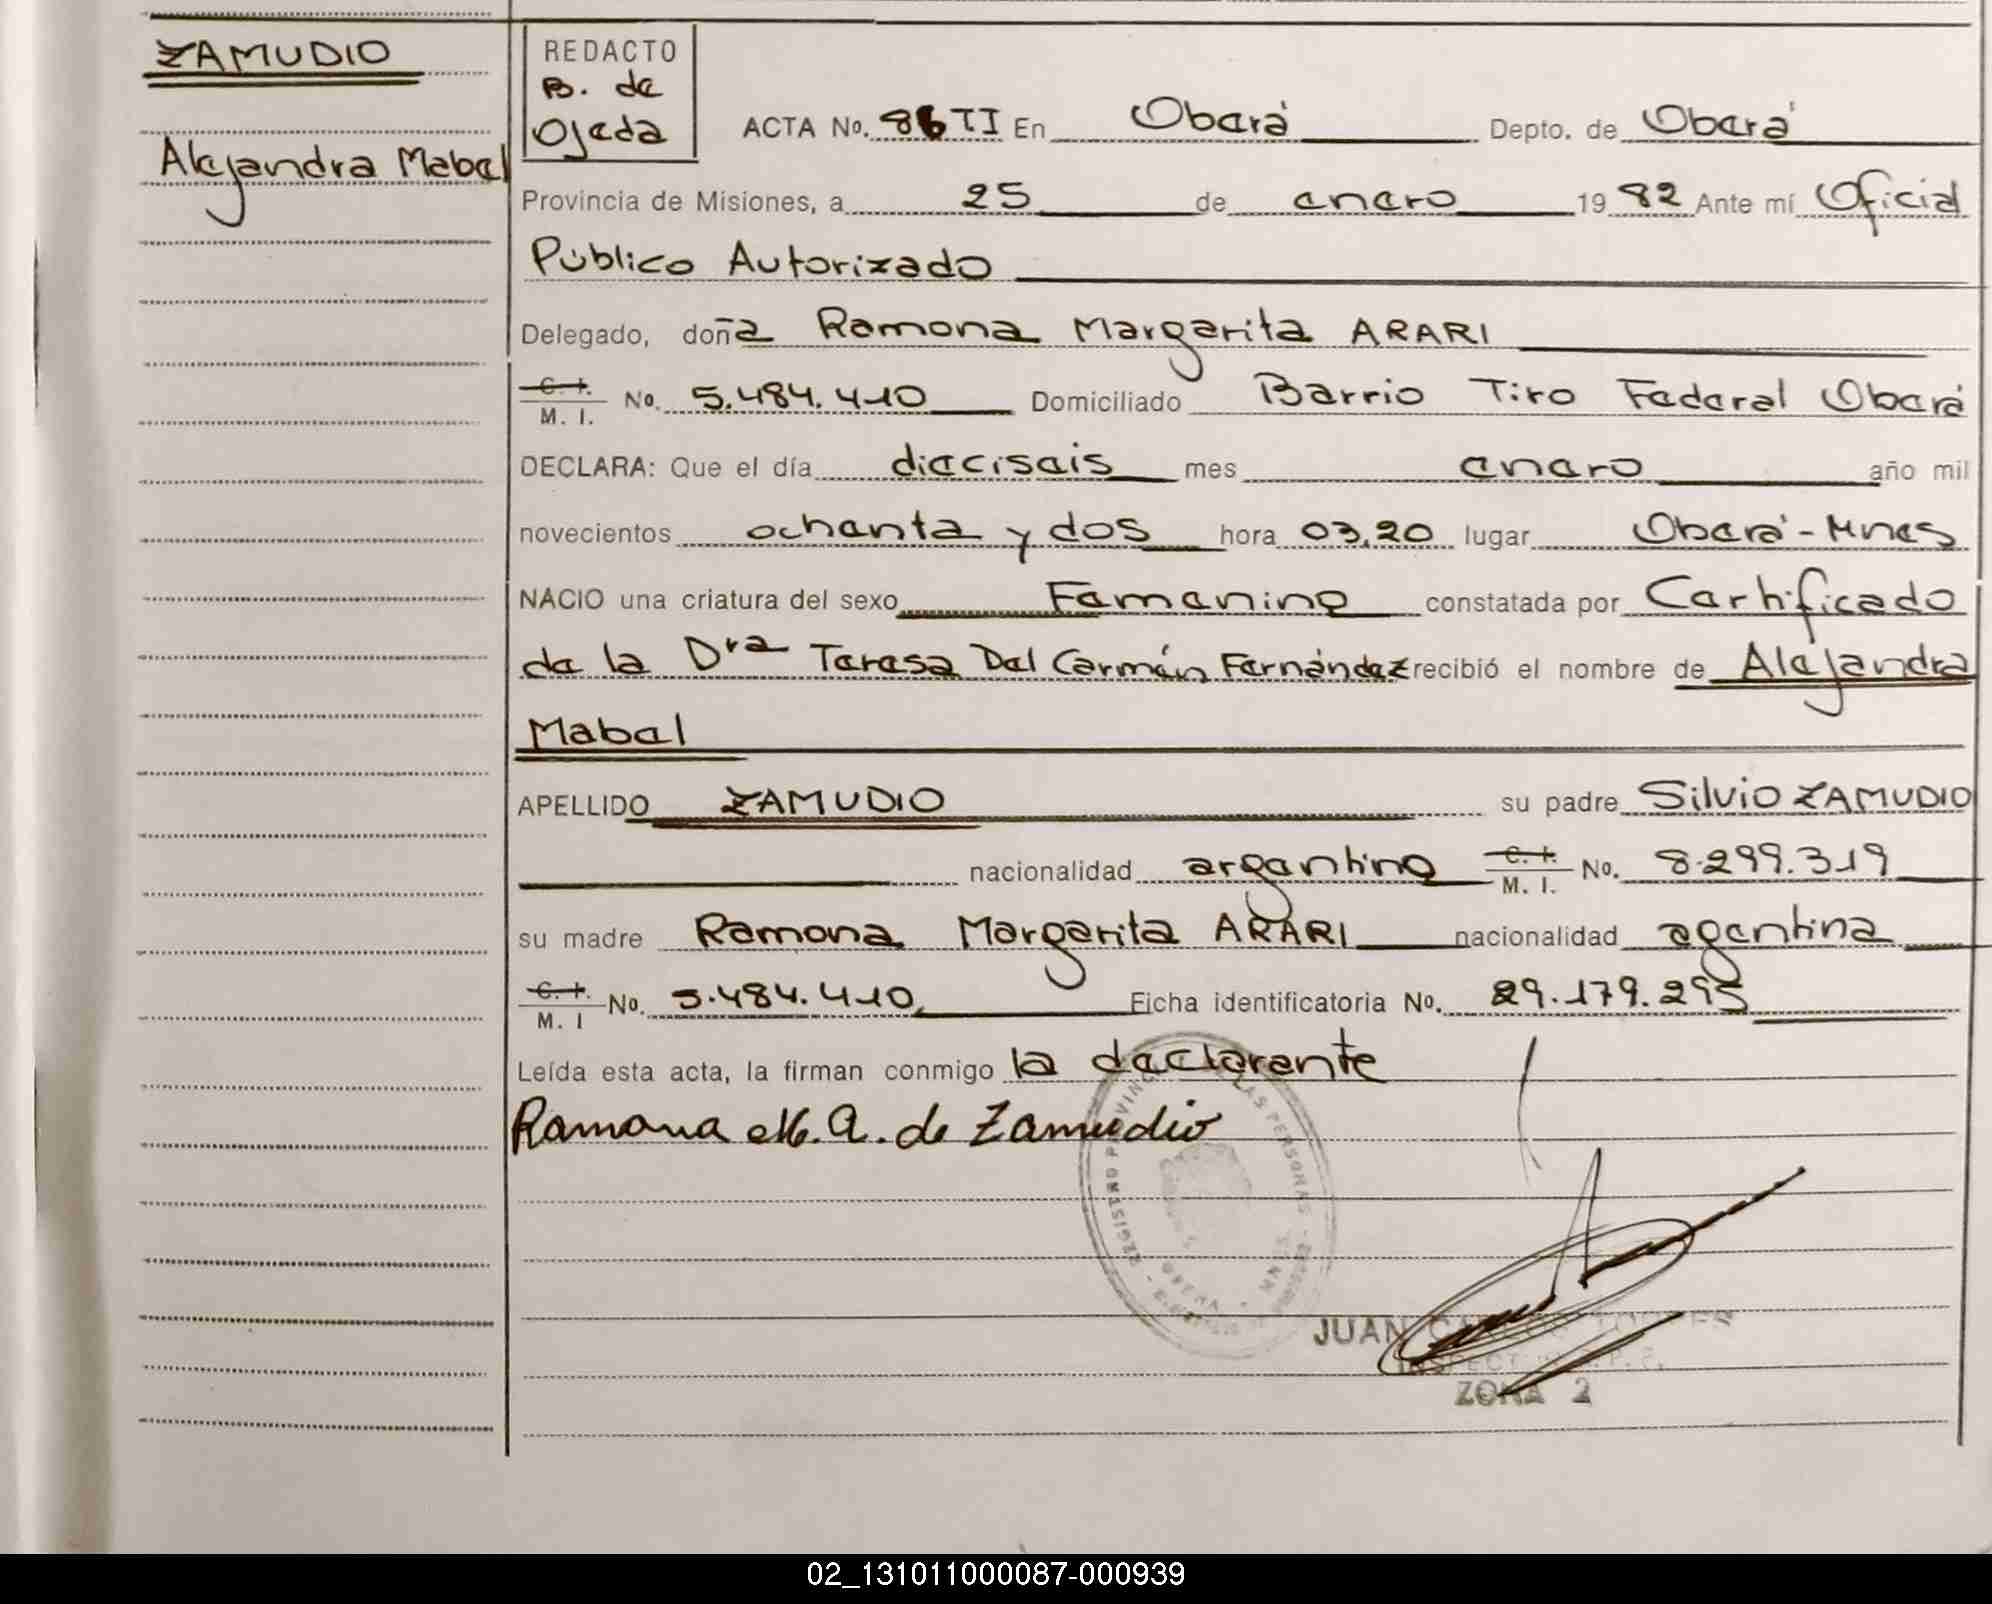 ZAMUDIO
Alejandra Mabel
REDACTO
B. de
Ojeda
ACTA No. 86 TI En Oberá Depto. de Oberá
Provincia de Misiones, a 25 de enero 1982 Ante mí Oficial
Público Autorizado
Delegado, doña Ramona Margarita ARARI
C. I. M. I. No. 5.484.410 Domiciliado Barrio Tiro Federal Oberá
DECLARA: Que el día dieciseis mes enero año mil
novecientos ochenta y dos hora 03,20 lugar Oberá-Mnes
NACIO una criatura del sexo Femenino constatada por Certificado
de la Dra Teresa Del Carmén Fernández recibió el nombre de Alejandra
Mabel
APELLIDO ZAMUDIO su padre Silvio ZAMUDIO
nacionalidad argentino C. I. M. I. No. 8.299.319
su madre Ramona Margarita ARARI nacionalidad agentina
C. I. M. I No. 5.484.410, Ficha identificatoria No. 29.179.295
Leída esta acta, la firman conmigo la declarante
Ramona M. A. de Zamudio
REGISTRO PROVINC LAS PERSONAS
JUAN CARLOS TORRES
INSPECTOR
ZONA 2
02_131011000087-000939